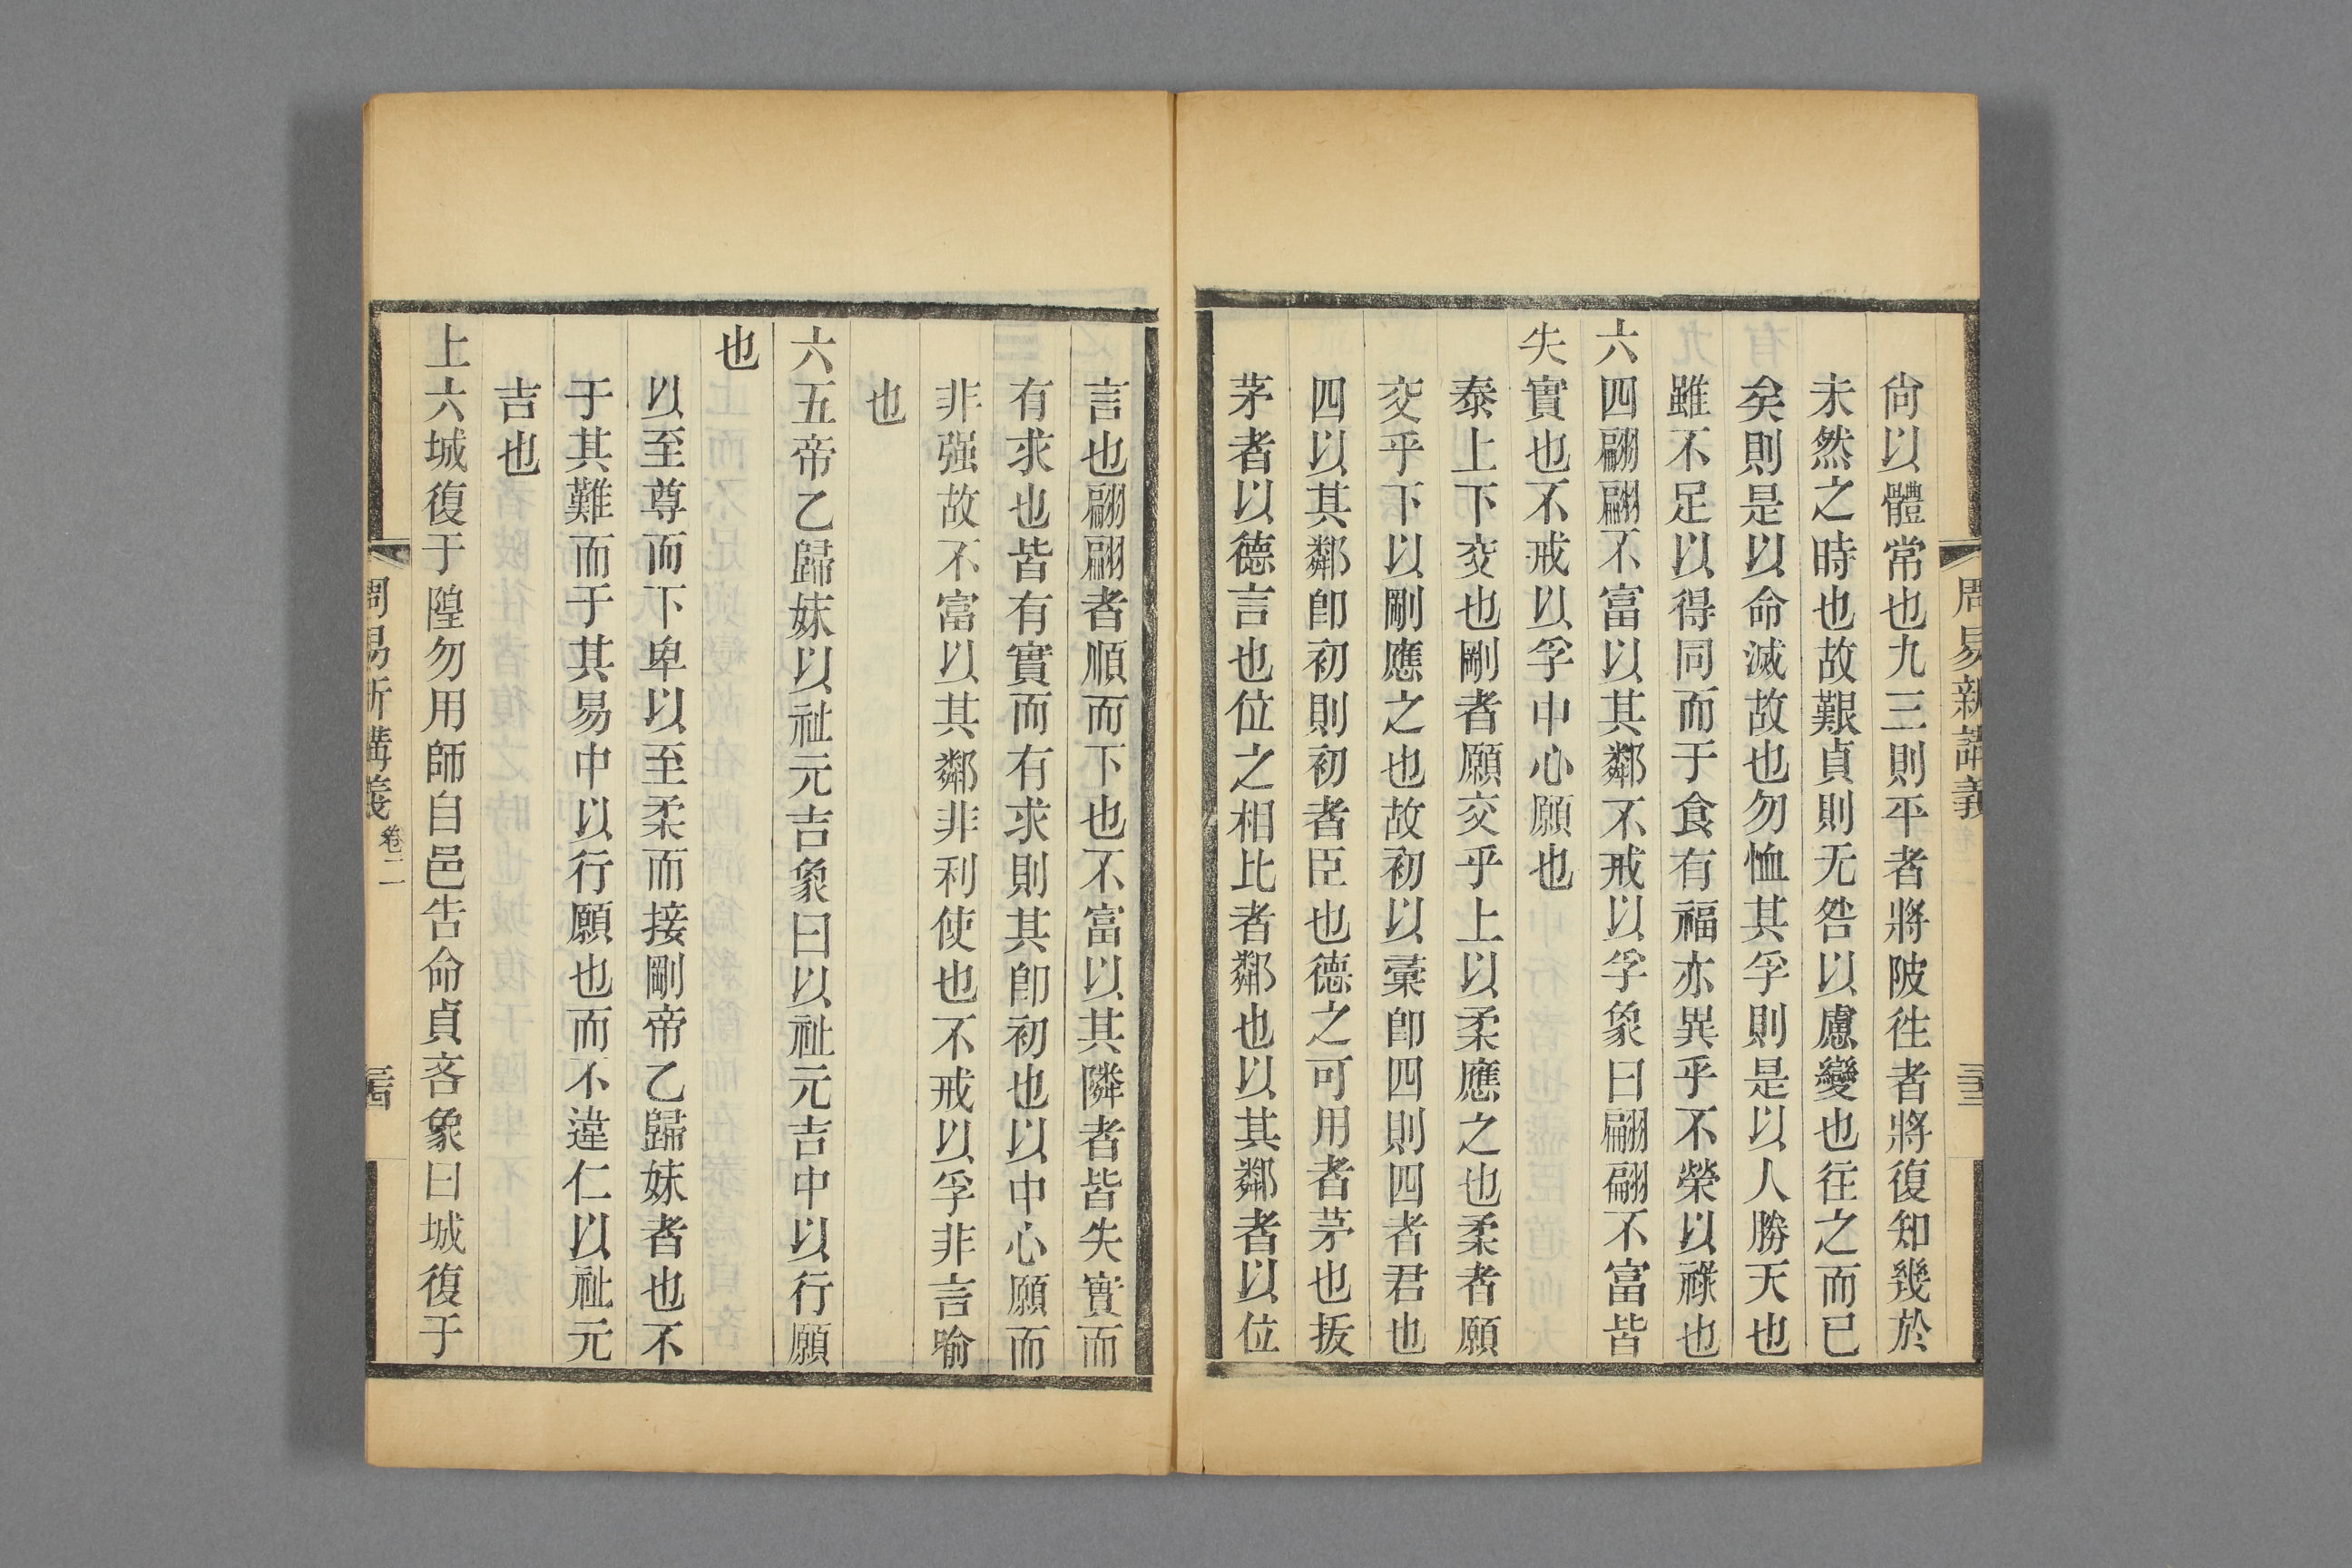 周易新講義
三十三
尙以體常也九三則平者將陂徃者將復知幾於
未然之時也故艱貞則无咎以慮變也往之而已
矣則是以命滅故也勿恤其孚則是以人勝天也
雖不足以得同而于食有福亦異乎不榮以祿也
六四翩翩不富以其鄰不戒以孚象曰翩翩不富皆
失實也不戒以孚中心願也
泰上下交也剛者願交乎上以柔應之也柔者願
交乎下以剛應之也故初以彚卽四則四者君也
四以其鄰卽初則初者臣也德之可用者茅也拔
茅者以德言也位之相比者鄰也以其鄰者以位
言也翩翩者順而下也不富以其隣者皆失實而
有求也皆有實而有求則其卽初也以中心願而
非强故不富以其鄰非利使也不戒以孚非言喻
也
六五帝乙歸妹以祉元吉象曰以祉元吉中以行願
也
以至尊而下卑以至柔而接剛帝乙歸妹者也不
于其難而于其易中以行願也而不違仁以祉元
吉也
上六城復于隍勿用師自邑告命貞吝象曰城復于
周易新講義 卷二
三十四